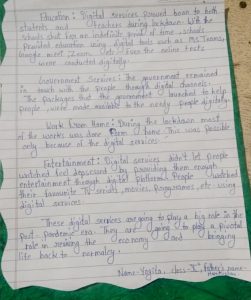 Education: Digital services proved boon to both
students and teachers during lockdown. With the
schools shut for an indefinite period of time, schools
provided education using digital tools such as Ms Teams,
Google meet, Zoom. Even the online tests
were conducted digitally.
Government Services: the government remained
in touch with the people through digital channels.
The packages that the government launched to help
people, were made available to the needy people digitally.
Work from Home: During the lockdown most
of the works was done from home. This was possible
only because of the digital services.
Entertainment: Digital services didn't let people
feel depressed by providing them enough
entertainment through digital platforms. People watched
their favourite TV serials, movies, programmes, etc. using
digital services.
These digital services are going to play a big role in the
post-pandemic era. They are going to play a pivotal
role in reviving the economy and bringing
life back to normalcy.
Name- Yogita, class- X, Father's name-